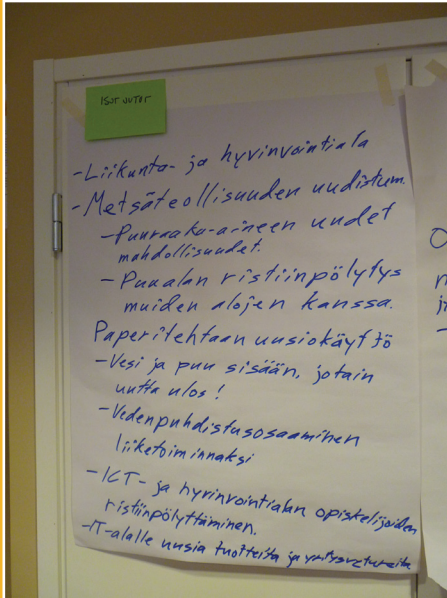 ISOT JUTUT
-Liikunta- ja hyvinvointiala
-Metsäteollisuuden uudistum.
-Puuraaka-aineen uudet
mahdollisuudet.
-Puualan ristiinpölytys
muiden alojen kanssa.
Paperitehtaan uusiokäyttö
-Vesi ja puu sisään, jotain
uutta ulos!
-Vedenpuhdistusosaaminen
liiketoiminnaksi
-ICT- ja hyvinvointialan opiskelijoiden
ristiinpölyttäminen.
-IT-alalle uusia tuotteita ja